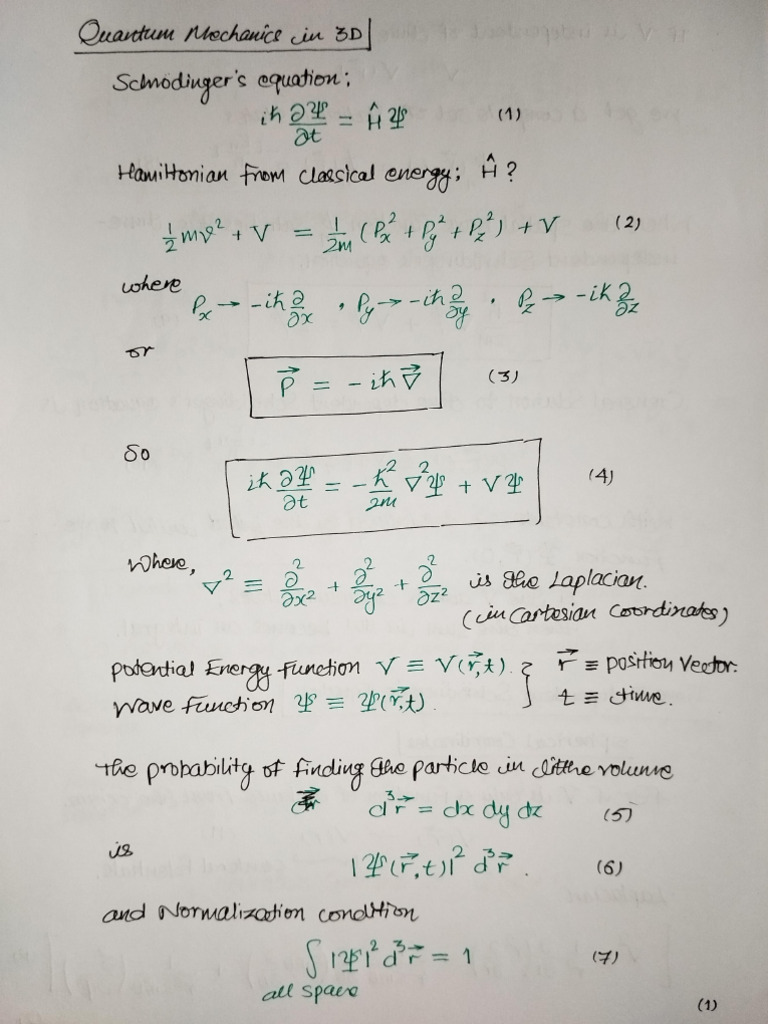 Quantum Mechanics in 3D
Schrodinger's equation:
iℏ ∂Ψ/∂t = Ĥ Ψ (1)
Hamiltonian from classical energy; Ĥ ?
1/2 mv² + V = 1/2m (Px² + Py² + Pz²) + V (2)
where
Px → -iℏ ∂/∂x , Py → -iℏ ∂/∂y , Pz → -iℏ ∂/∂z
or
P⃗ = -iℏ ∇⃗ (3)
So
iℏ ∂Ψ/∂t = -ℏ²/2m ∇²Ψ + VΨ (4)
Where,
∇² ≡ ∂²/∂x² + ∂²/∂y² + ∂²/∂z² is the Laplacian.
(in Cartesian Coordinates)
Potential Energy Function V ≡ V(r⃗,t). } r⃗ ≡ position vector.
Wave Function Ψ ≡ Ψ(r⃗,t). t ≡ time.
The probability of finding the particle in litthe volume
d³r⃗ = dx dy dz (5)
is
|Ψ(r⃗,t)|² d³r⃗. (6)
and Normalization condition
∫ |Ψ|² d³r⃗ = 1 (7)
all space
(1)